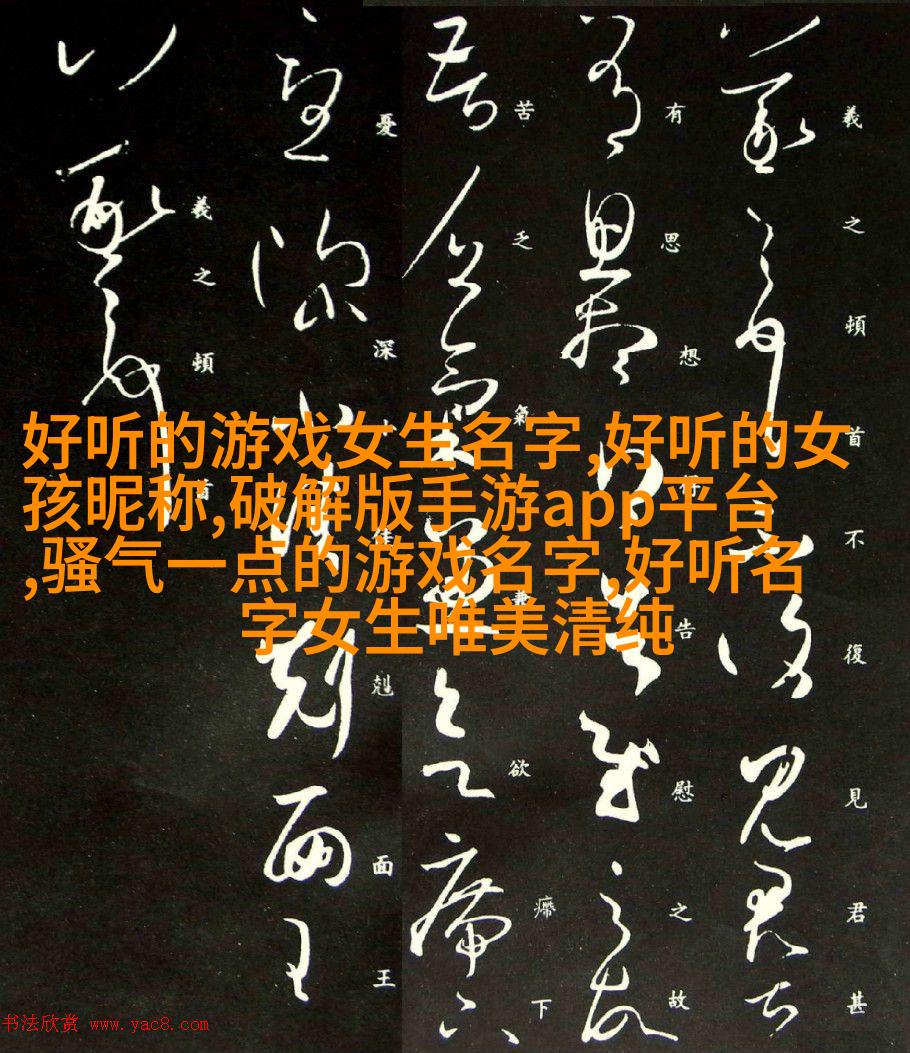 好听的游戏女生名字,好听的女
孩昵称,破解版手游app平台
,骚气一点的游戏名字,好听名
字女生唯美清纯
羲之頓首不復見君甚
有思想得告慰之故
苦乏氣兼欲㿃下
憂深小佳剋面王
羲之頓首
书法欣赏 www.yac8.com